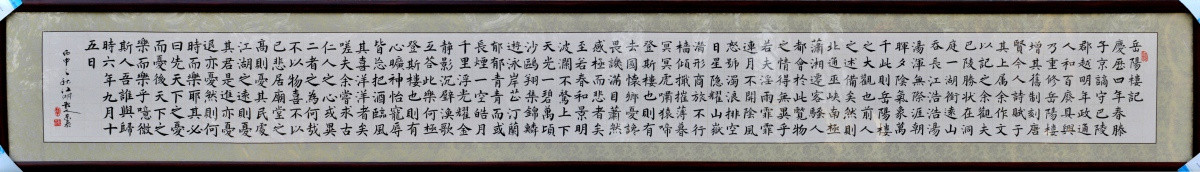 岳陽樓記
慶曆四年春滕
子京謫守巴陵
郡越明年政通
人和百廢具興
乃重修岳陽樓
增其舊制刻唐
賢今人詩賦于
其上屬余作文
以記之余觀夫
巴陵勝狀在洞
庭一湖銜遠山
吞長江浩浩湯
湯渾無際涯朝
暉夕陰氣象萬
千此則岳陽樓
之大觀也前人
之述備矣然則
北通巫峽南極
瀟湘遷客騷人
都會於此覽物
之情得無異乎
若夫淫雨霏霏
連月不開陰風
怒號濁浪排空
日星隱耀山嶽
潛形商旅不行
檣傾楫摧薄暮
冥冥虎嘯猿啼
登斯樓也則有
去國懷鄉憂讒
畏譏滿目蕭然
感極而悲者矣
至若春和景明
波瀾不驚上下
天光一碧萬頃
沙鷗翔集錦鱗
遊泳岸芷汀蘭
郁郁青青而或
長煙一空皓月
千里浮光耀金
靜影沉璧漁歌
互答此樂何極
登斯樓也則有
心曠神怡寵辱
皆忘把酒臨風
其喜洋洋者矣
嗟夫余嘗求古
仁人之心或異
二者之為何哉
不以物喜不以
己悲居廟堂之
高則憂其民處
江湖之遠則憂
其君是進亦憂
退亦憂然則何
時而樂耶其必
曰先天下之憂
而憂後天下之
樂而樂乎噫微
斯人吾誰與歸
時六年九月十
五日
丙申